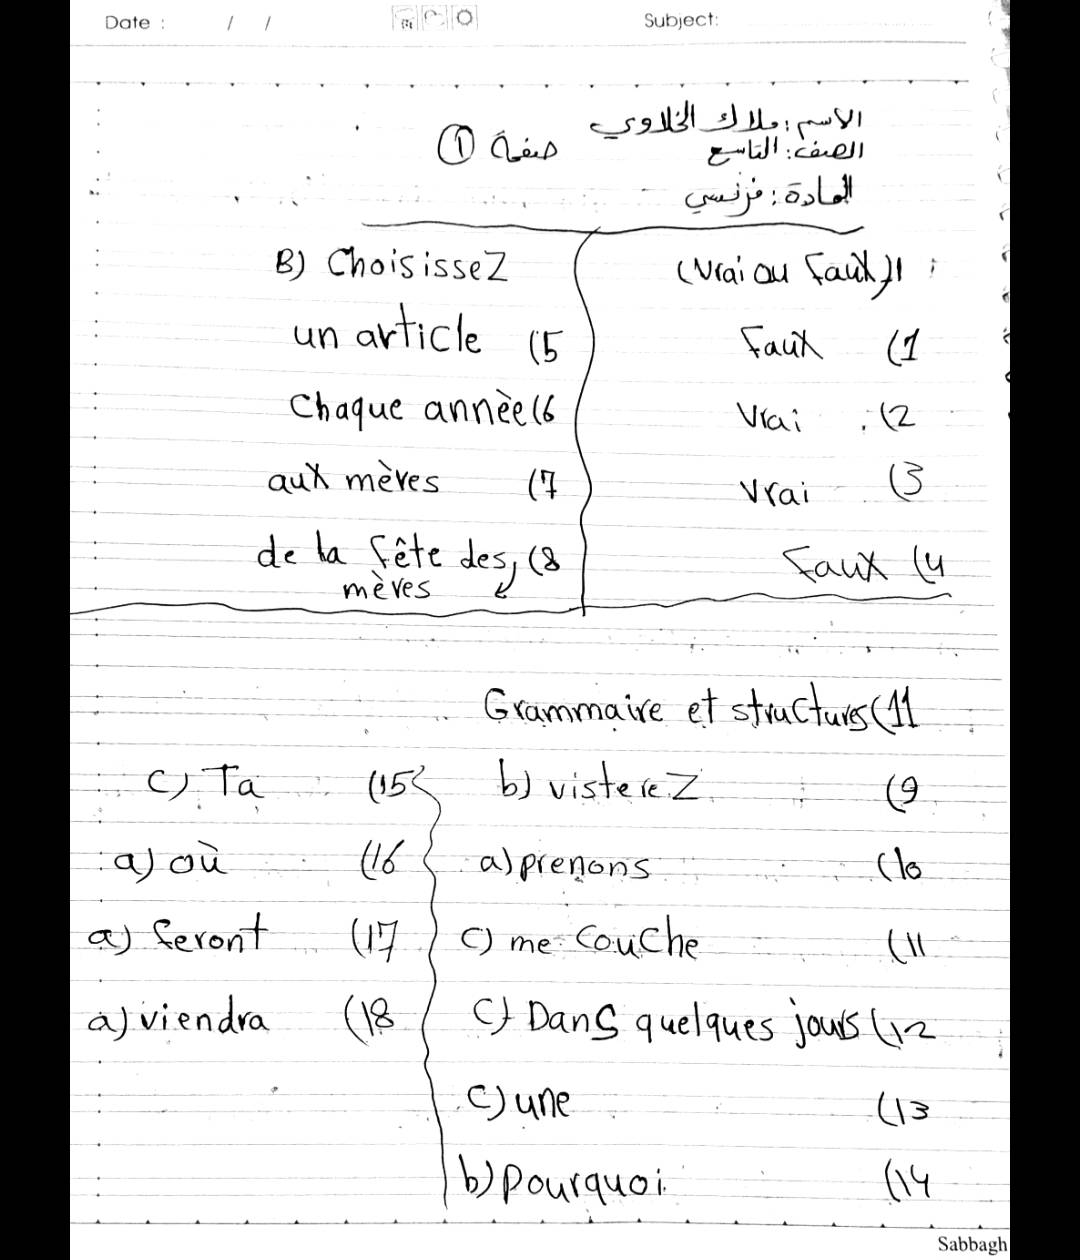 Date : / / Subject:
الاسم: ملاك الخلاوي
صفحة ①
الصف: التاسع
المادة: فرنسي
(Vrai ou Faux) I
Faux (1
Vrai (2
Vrai (3
Faux (4
B) Choisissez
un article (5
Chaque annèe (6
aux mères (7
de la fête des (8
mères
Grammaire et structures (II
b) visterez (9
a) prenons (10
c) me couche (11
c) Dans quelques jours (12
c) une (13
b) Pourquoi (14
c) Ta (15
a) où (16
a) feront (17
a) viendra (18
Sabbagh